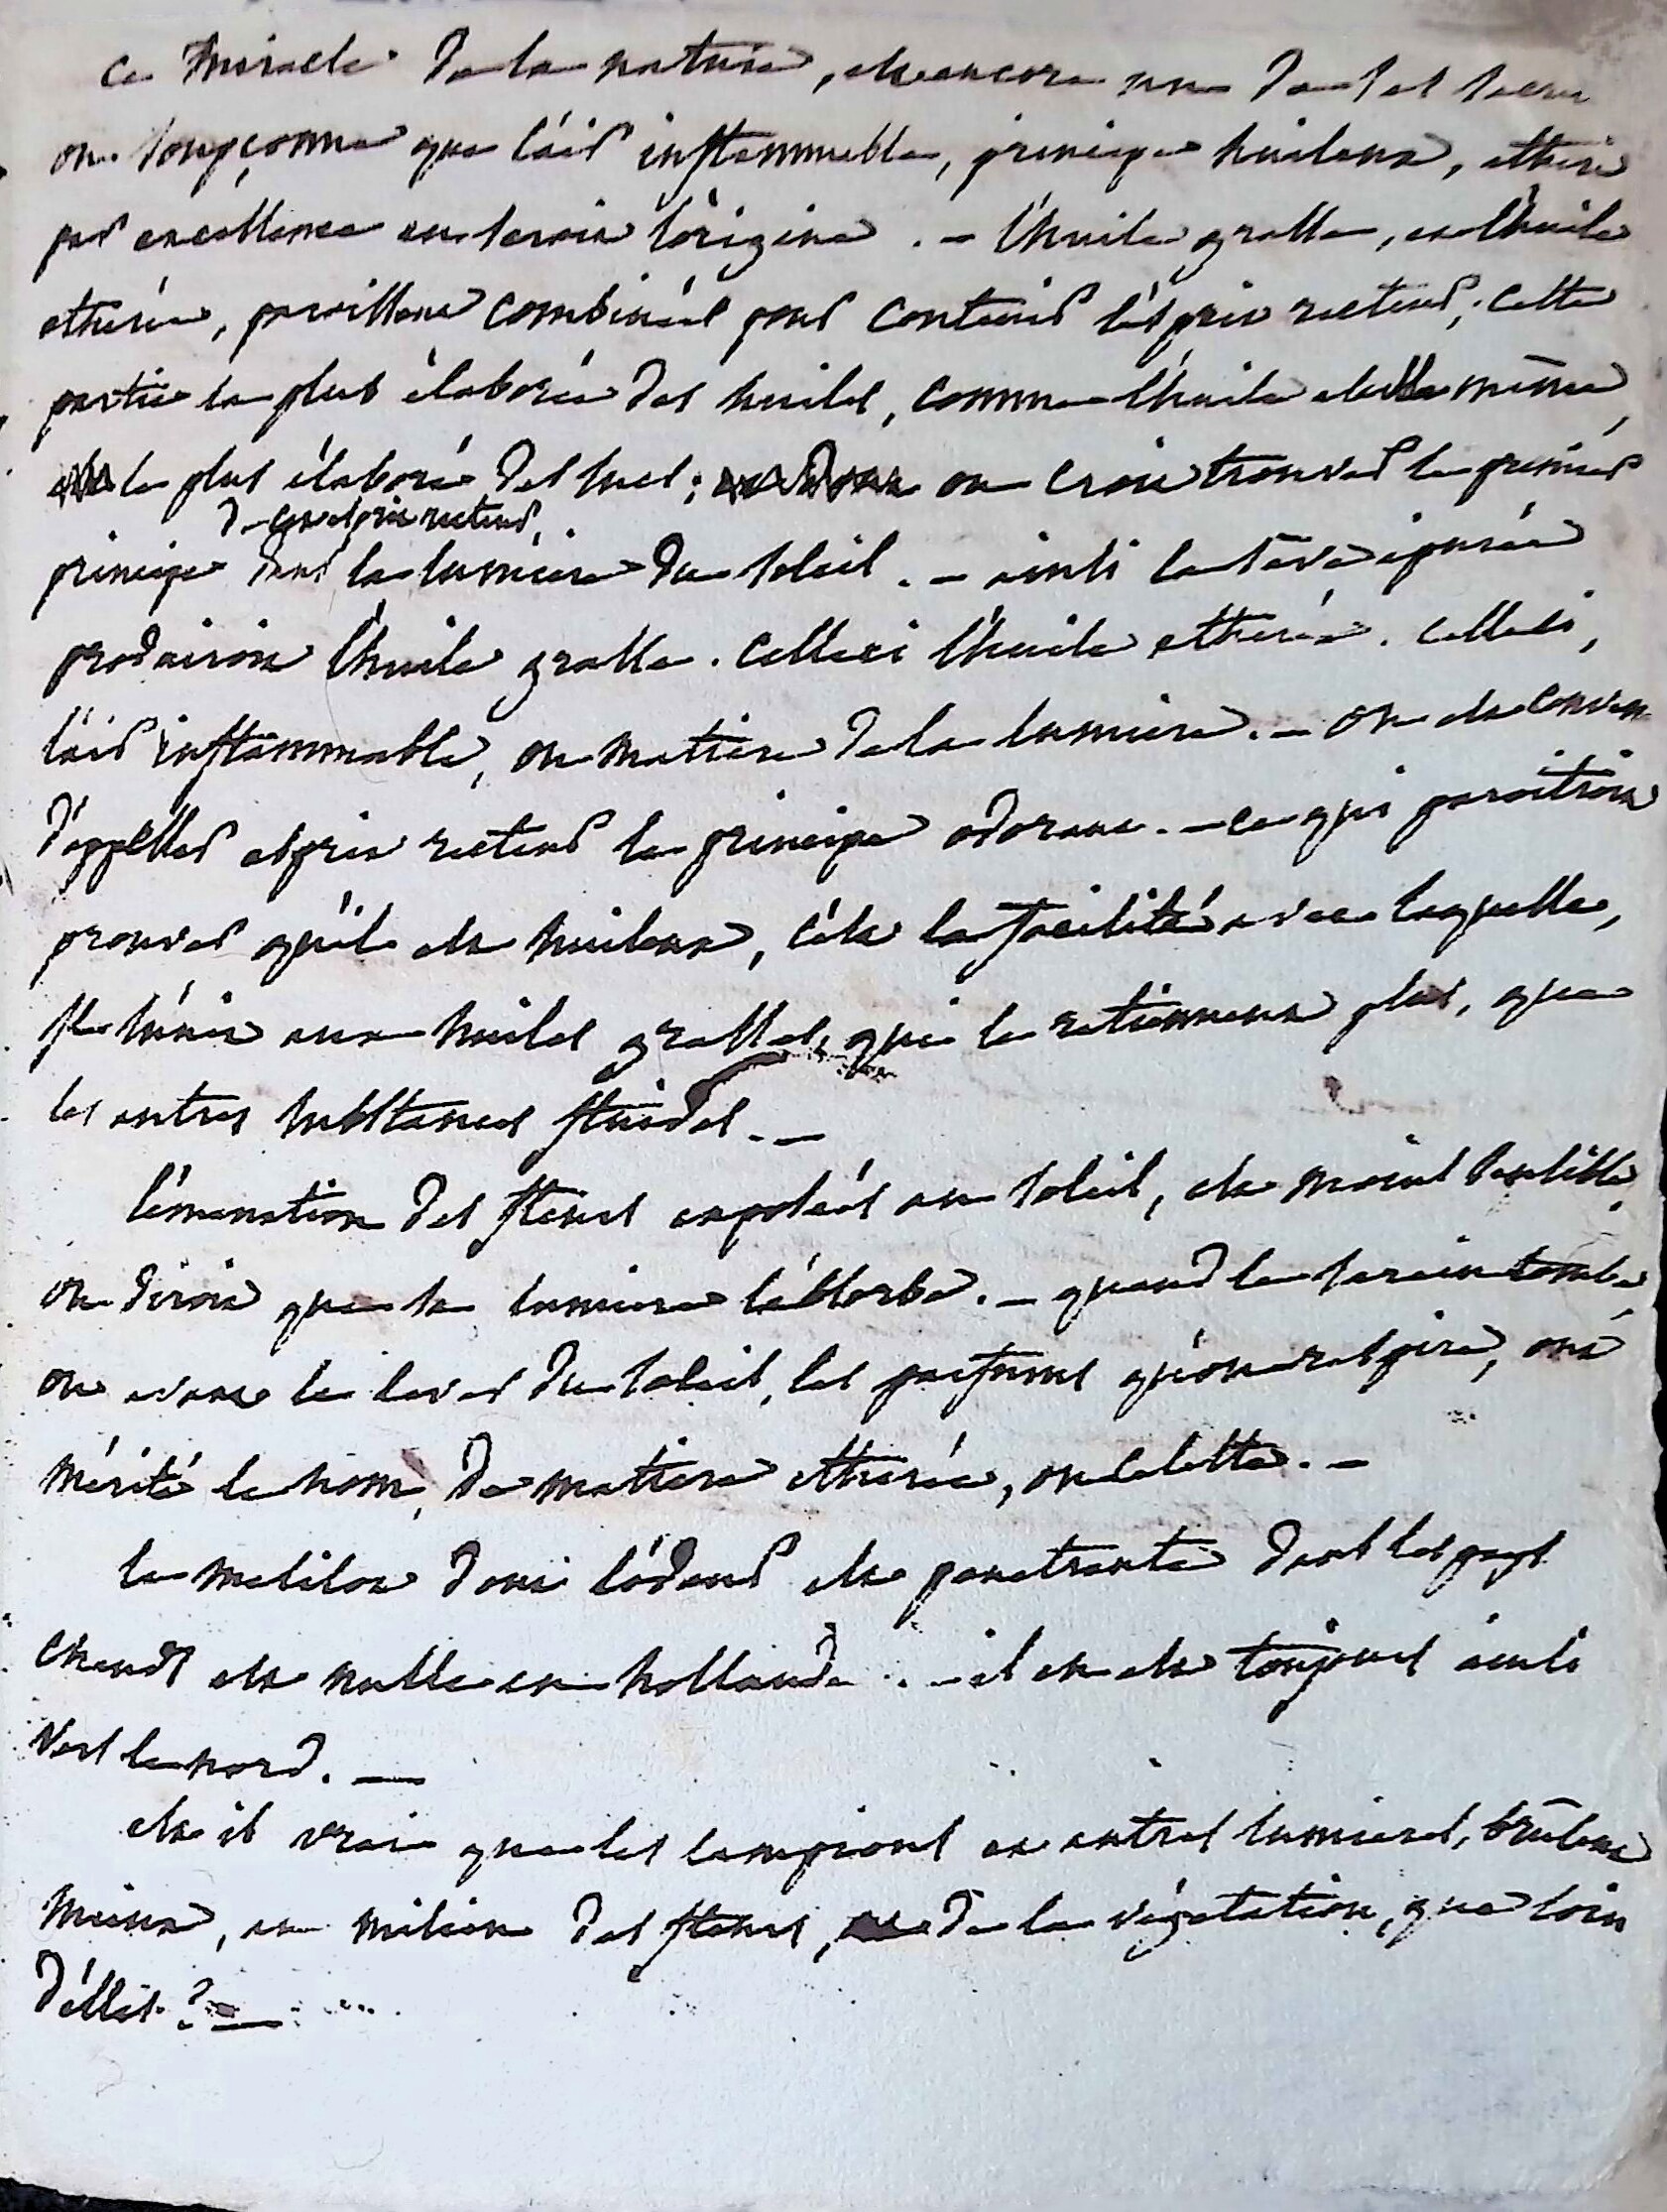 ce miracle de la nature, est encore un de ses secrets
on soupçonne que l'air inflammable, principe huileux, étheré
par excellence en seroit l'origine. — l'huile grasse, et l'huile
etherée, paroissent combinées pour contenir l'esprit recteur; cette
partie la plus élaborée des huiles, comme l'huile est elle même
la plus élaborée des sucs; on croit trouver le premier
de cet esprit recteur,
principe dans la lumière du soleil. — ainsi la séve épurée
produiroit l'huile grasse. celle ci l'huile etherée. celle ci,
l'air inflammable, ou matiere de la lumiere. — on est convenu
d'appeller esprit recteur le principe odorant. — ce qui paroitroit
prouver qu'il est huileux, c'est la facilité avec laquelle,
il s'unit aux huiles grasses, qui le retiennent plus, que
les autres substances fluides. —
l'émanation des fleurs exposées au soleil, est moins sensible.
on diroit que sa lumiere l'absorbe. — quand le serein tombe,
ou avant le lever du soleil, les parfums qu'on respire, ont
mérité le nom, de matiere etherée, ou celeste. —
le melilot dont l'odeur est penetrante dans les pays
chauds est nulle en hollande. — il en est toujours ainsi
vers le nord. —
est il vrai que les lampions et autres lumieres, brûlent
mieux, au milieu des fleurs, de la végétation, que loin
d'elles? —